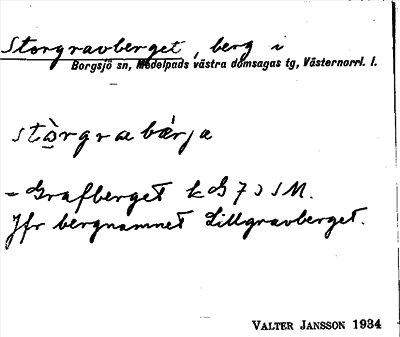 Storgravberget, berg i
Borgsjö sn, Medelpads västra domsagas tg, Västernorrl. l.
= Grafberget k G 7 3 SM.
Jfr bergnamnet Lillgravberget.
VALTER JANSSON 1934